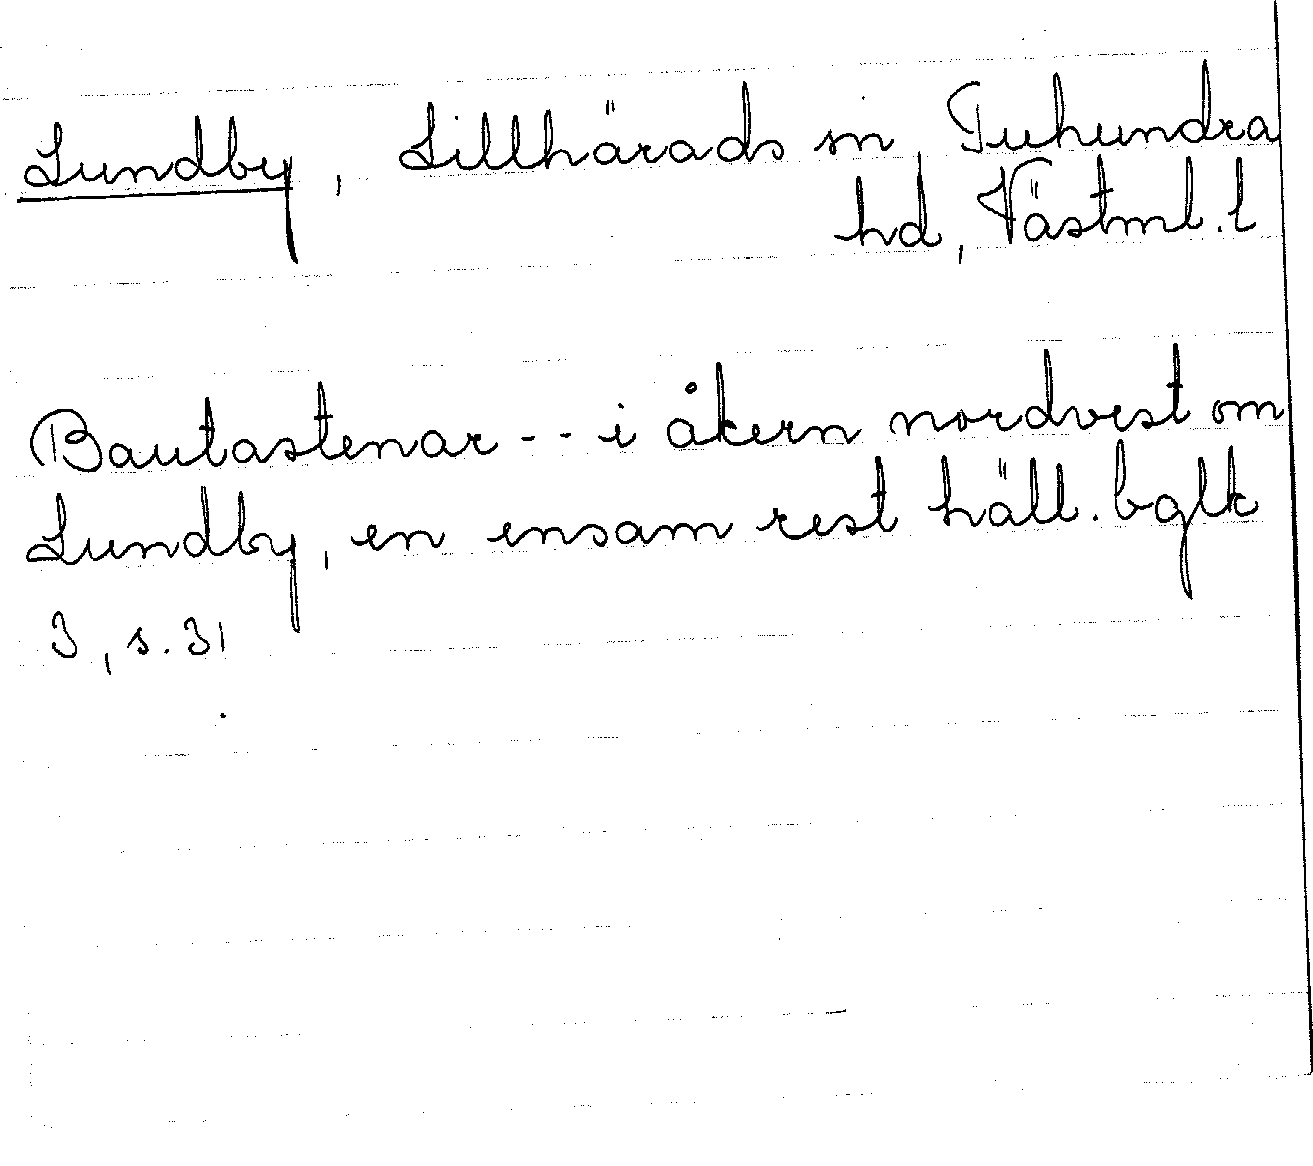 Lundby, Lillhärads sn, Tuhundra
hd, Västml. l
Bautastenar -- i åkern nordvest om
Lundby, en ensam rest häll. bglk
3, s. 31